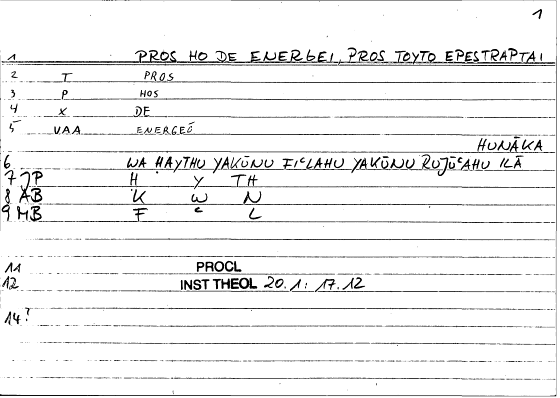 1
1 PROS HO DE ENERGEI, PROS TOYTO EPESTRAPTAI
2 T PROS
3 P HOS
4 X DE
5 VAA ENERGEŌ
HUNĀKA
6 WA ḤAYTHU YAKŪNU FIʿLAHU YAKŪNU RUJŪʿAHU ILĀ
7 JP Ḥ Y TH
8 AB K W N
9 MB F ʿ L
11 PROCL
12 INST THEOL 20.1: 17.12
14?